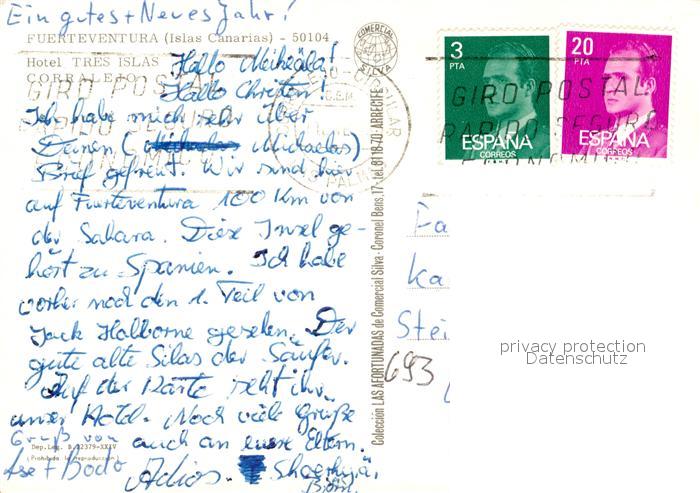 Ein gutes + Neues Jahr!
FUERTEVENTURA (Islas Canarias) - 50104
Hotel TRES ISLAS
CORRALEJO
Hallo Micheala!
Hallo Christen!
Ich habe mich sehr über
Deinen ( Michaelas)
Brief gefreut. Wir sind hier
auf Fuerteventura 100 Km von
der Sahara. Diese Insel ge-
hört zu Spanien. Ich habe
vorher noch den 1. Teil von
Jack Holborne gesehen. Der
gute alte Silas der Säufer.
Auf der Karte seht ihr
unser Hotel. Noch viele Grüße
auch an eure Eltern.
Gruß von
Bodo
Adios.
Björn
Dep. Leg. B. 32379-XXIV
(Prohibida la reproducción)
COMERCIAL
SILVA
Colección LAS AFORTUNADAS de Comercial Silva - Coronel Bens, 17 - Tel. 811870 - ARRECIFE
3
PTA
ESPAÑA
CORREOS
20
PTA
ESPAÑA
CORREOS
GIRO POSTAL
RAPIDO SEGURO
ECONOMICO
GIRO POSTAL
RAPIDO SEGURO
ECONOMICO
Fa
Ka
Stei
693
privacy protection
Datenschutz